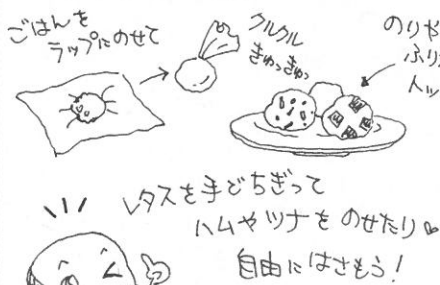 ごはんを
ラップにのせて
クルクル
きゅっきゅっ
のりや
ふり
レタスを手でちぎって
ハムやツナをのせたり
自由にはさもう!